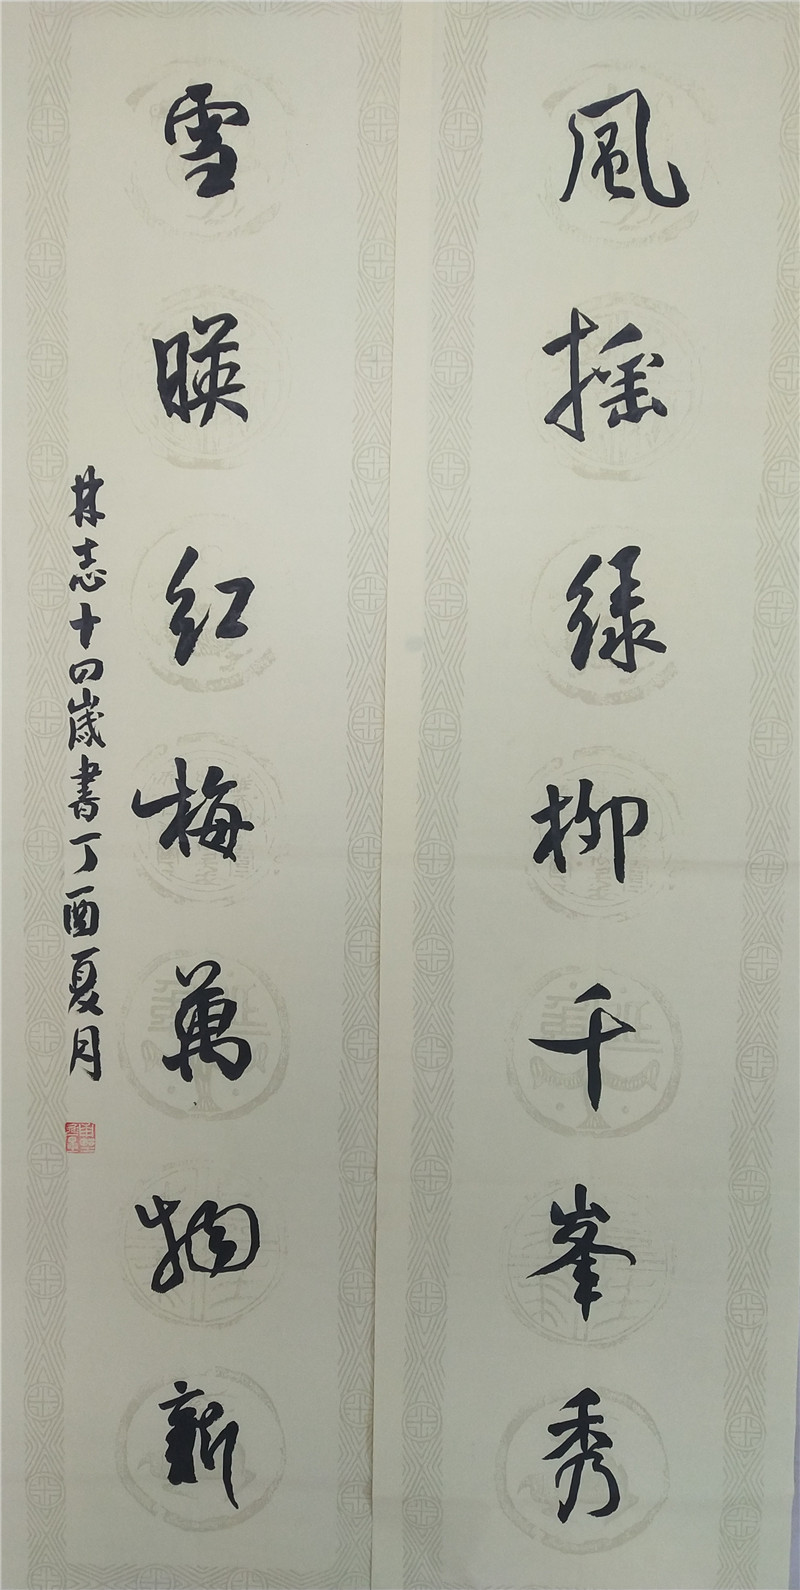 風摇緑柳千峯秀
雪暎红梅萬物新
林志十四歲書丁酉夏月